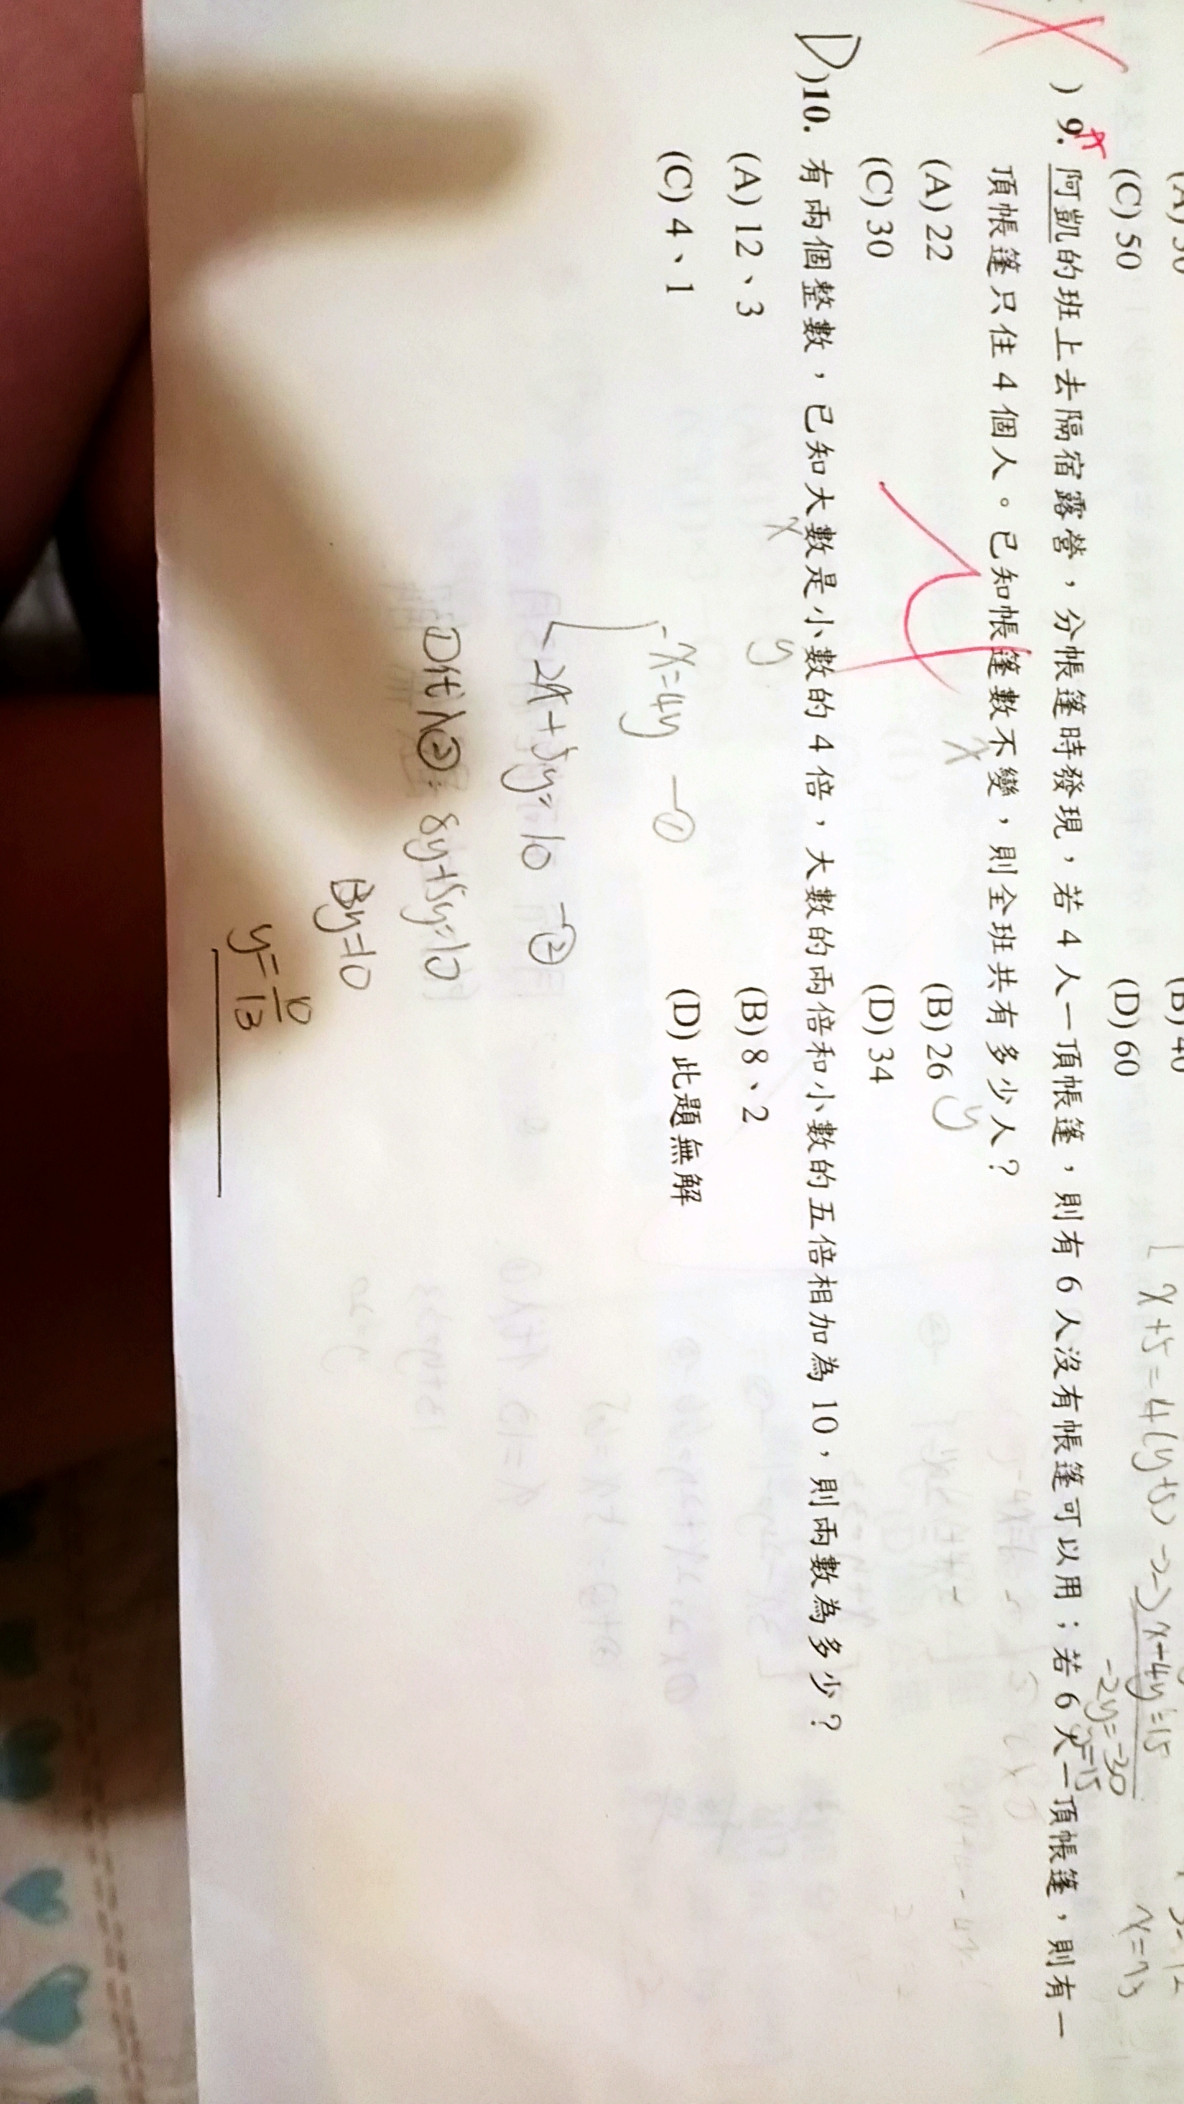 (C) 50
(D) 60
x+5=4(y+5)
x-4y=15
-2y=-30
y=15
) 9. 阿凱的班上去隔宿露營，分帳篷時發現，若 4 人一頂帳篷，則有 6 人沒有帳篷可以用；若 6 人一頂帳篷，則有一
頂帳篷只住 4 個人。已知帳篷數不變，則全班共有多少人？
x
y
(A) 22
(B) 26
(C) 30
(D) 34
D)10. 有兩個整數，已知大數是小數的 4 倍，大數的兩倍和小數的五倍相加為 10，則兩數為多少？
x
y
(A) 12、3
(B) 8、2
(C) 4、1
(D) 此題無解
x=4y —①
2x+5y=10 —②
①代入②: 8y+5y=10
13y=10
y=10/13